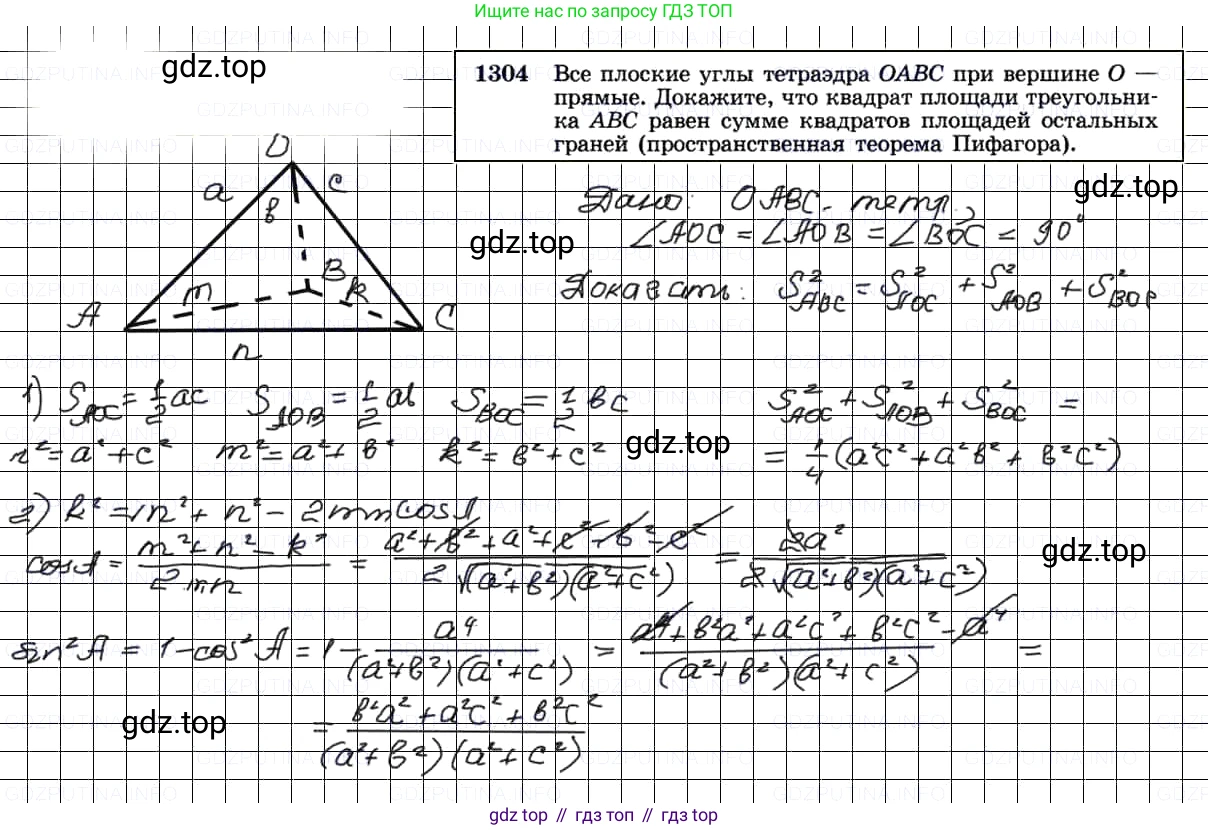 Ищите нас по запросу ГДЗ ТОП
gdz.top
1304 Все плоские углы тетраэдра OABC при вершине O —
прямые. Докажите, что квадрат площади треугольни-
ка ABC равен сумме квадратов площадей остальных
граней (пространственная теорема Пифагора).
O
a
c
в
A
m
B
k
C
n
gdz.top
Дано: OABC - тетр.,
∠AOC = ∠AOB = ∠BOC = 90°
gdz.top
Доказать: S²ABC = S²AOC + S²AOB + S²BOC
1) SAOC = 1/2 ac SAOB = 1/2 ab SBOC = 1/2 вc S²AOC + S²AOB + S²BOC =
n² = a² + c² m² = a² + в² k² = в² + c² gdz.top = 1/4 (a²c² + a²в² + в²c²)
2) k² = m² + n² - 2mn cosA
cosA = (m² + n² - k²)/(2mn) = (a² + в² + a² + c² - в² - c²)/(2√(a²+в²)(a²+c²)) = 2a²/(2√(a²+в²)(a²+c²)) gdz.top
sin²A = 1 - cos²A = 1 - a⁴/((a²+в²)(a²+c²)) = (a⁴ + в²a² + a²c² + в²c² - a⁴)/((a²+в²)(a²+c²)) =
gdz.top = (в²a² + a²c² + в²c²)/((a²+в²)(a²+c²))
gdz.top // гдз топ // gdz top